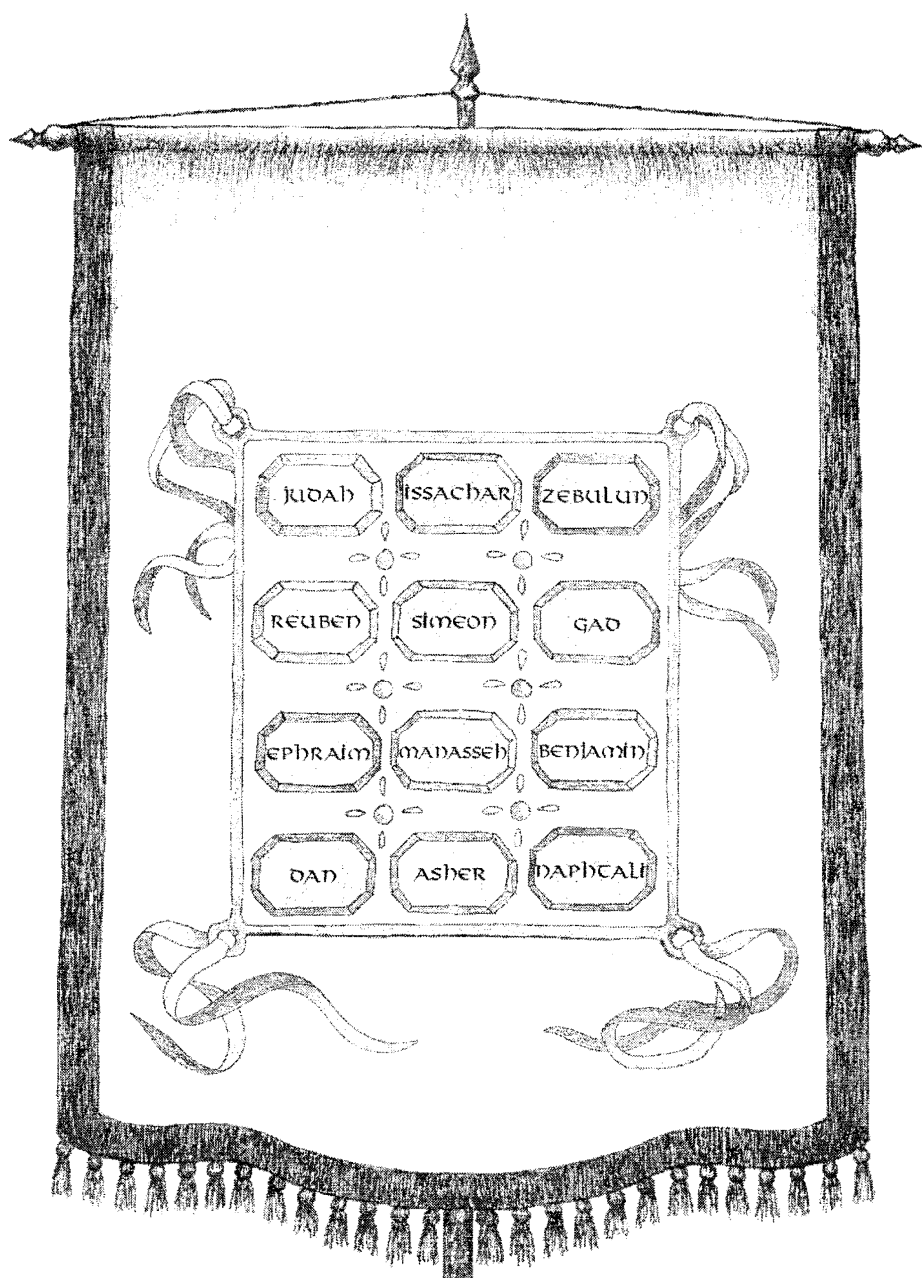 JUDAH ISSACHAR ZEBULUN
REUBEN SIMEON GAD
EPHRAIM MANASSEH BENJAMIN
DAN ASHER NAPHTALI